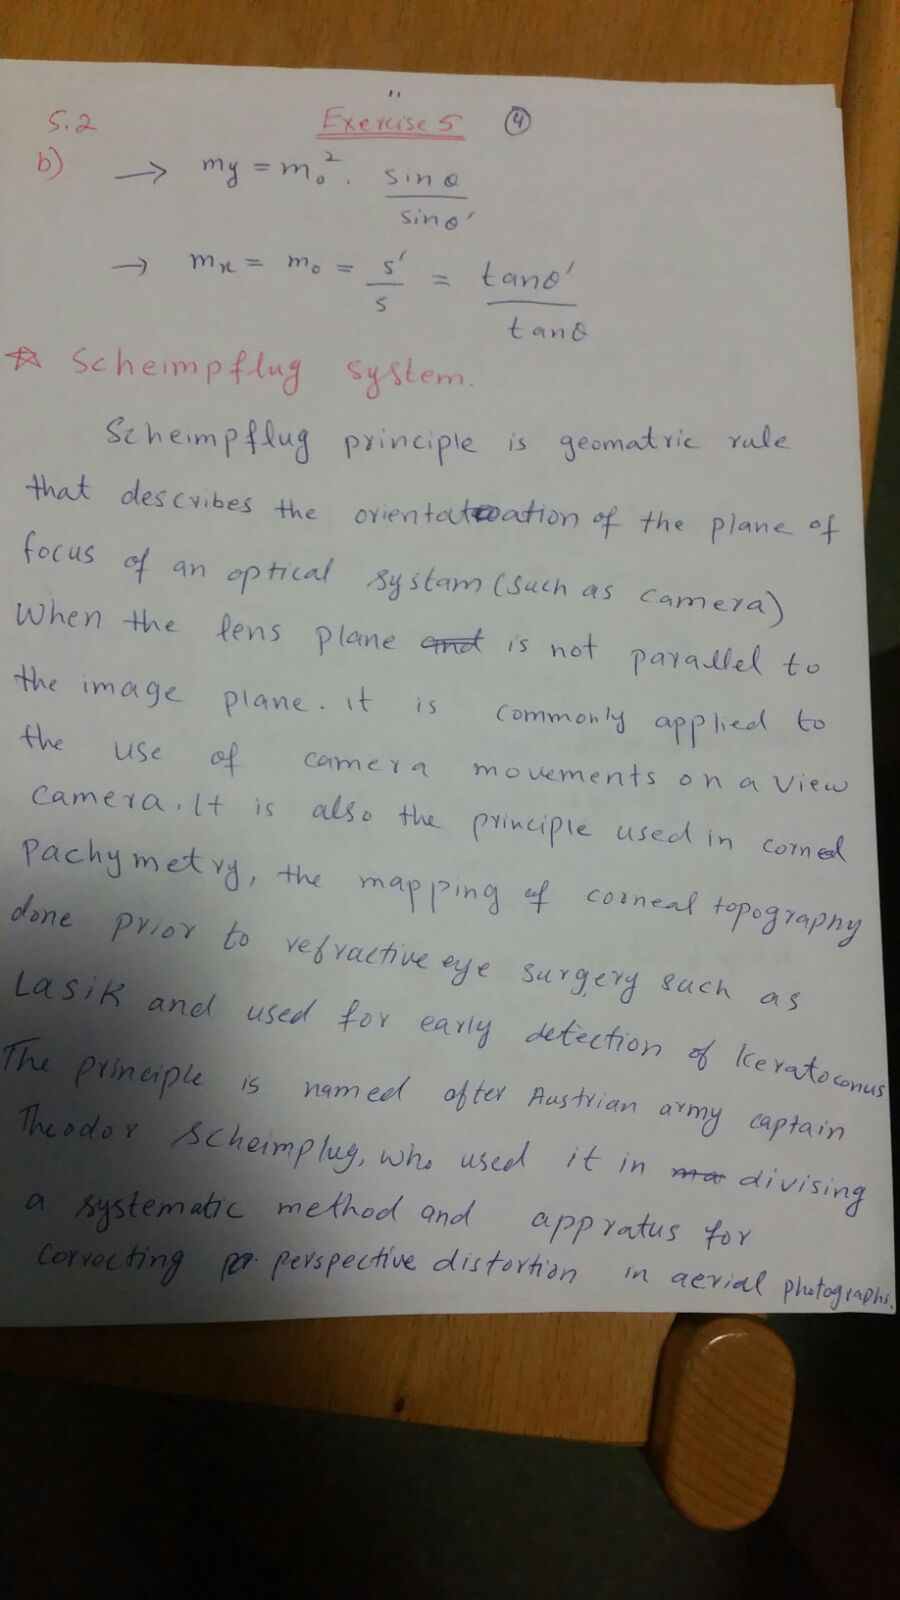 5.2 Exercise 5 4
b) → my = m₀² . sinθ / sinθ'
→ mx = m₀ = s' / s = tanθ' / tanθ
☆ Scheimpflug system.
Scheimpflug principle is geomatric rule
that describes the orientation of the plane of
focus of an optical systam (such as camera)
When the lens plane is not parallel to
the image plane. it is commonly applied to
the use of camera movements on a view
camera. It is also the principle used in corneal
pachymetry, the mapping of corneal topography
done prior to refractive eye surgery such as
Lasik and used for early detection of keratoconus
The principle is named after Austrian army captain
Theodor Scheimplug, who used it in divising
a systematic method and appratus for
correcting perspective distortion in aerial photographs.